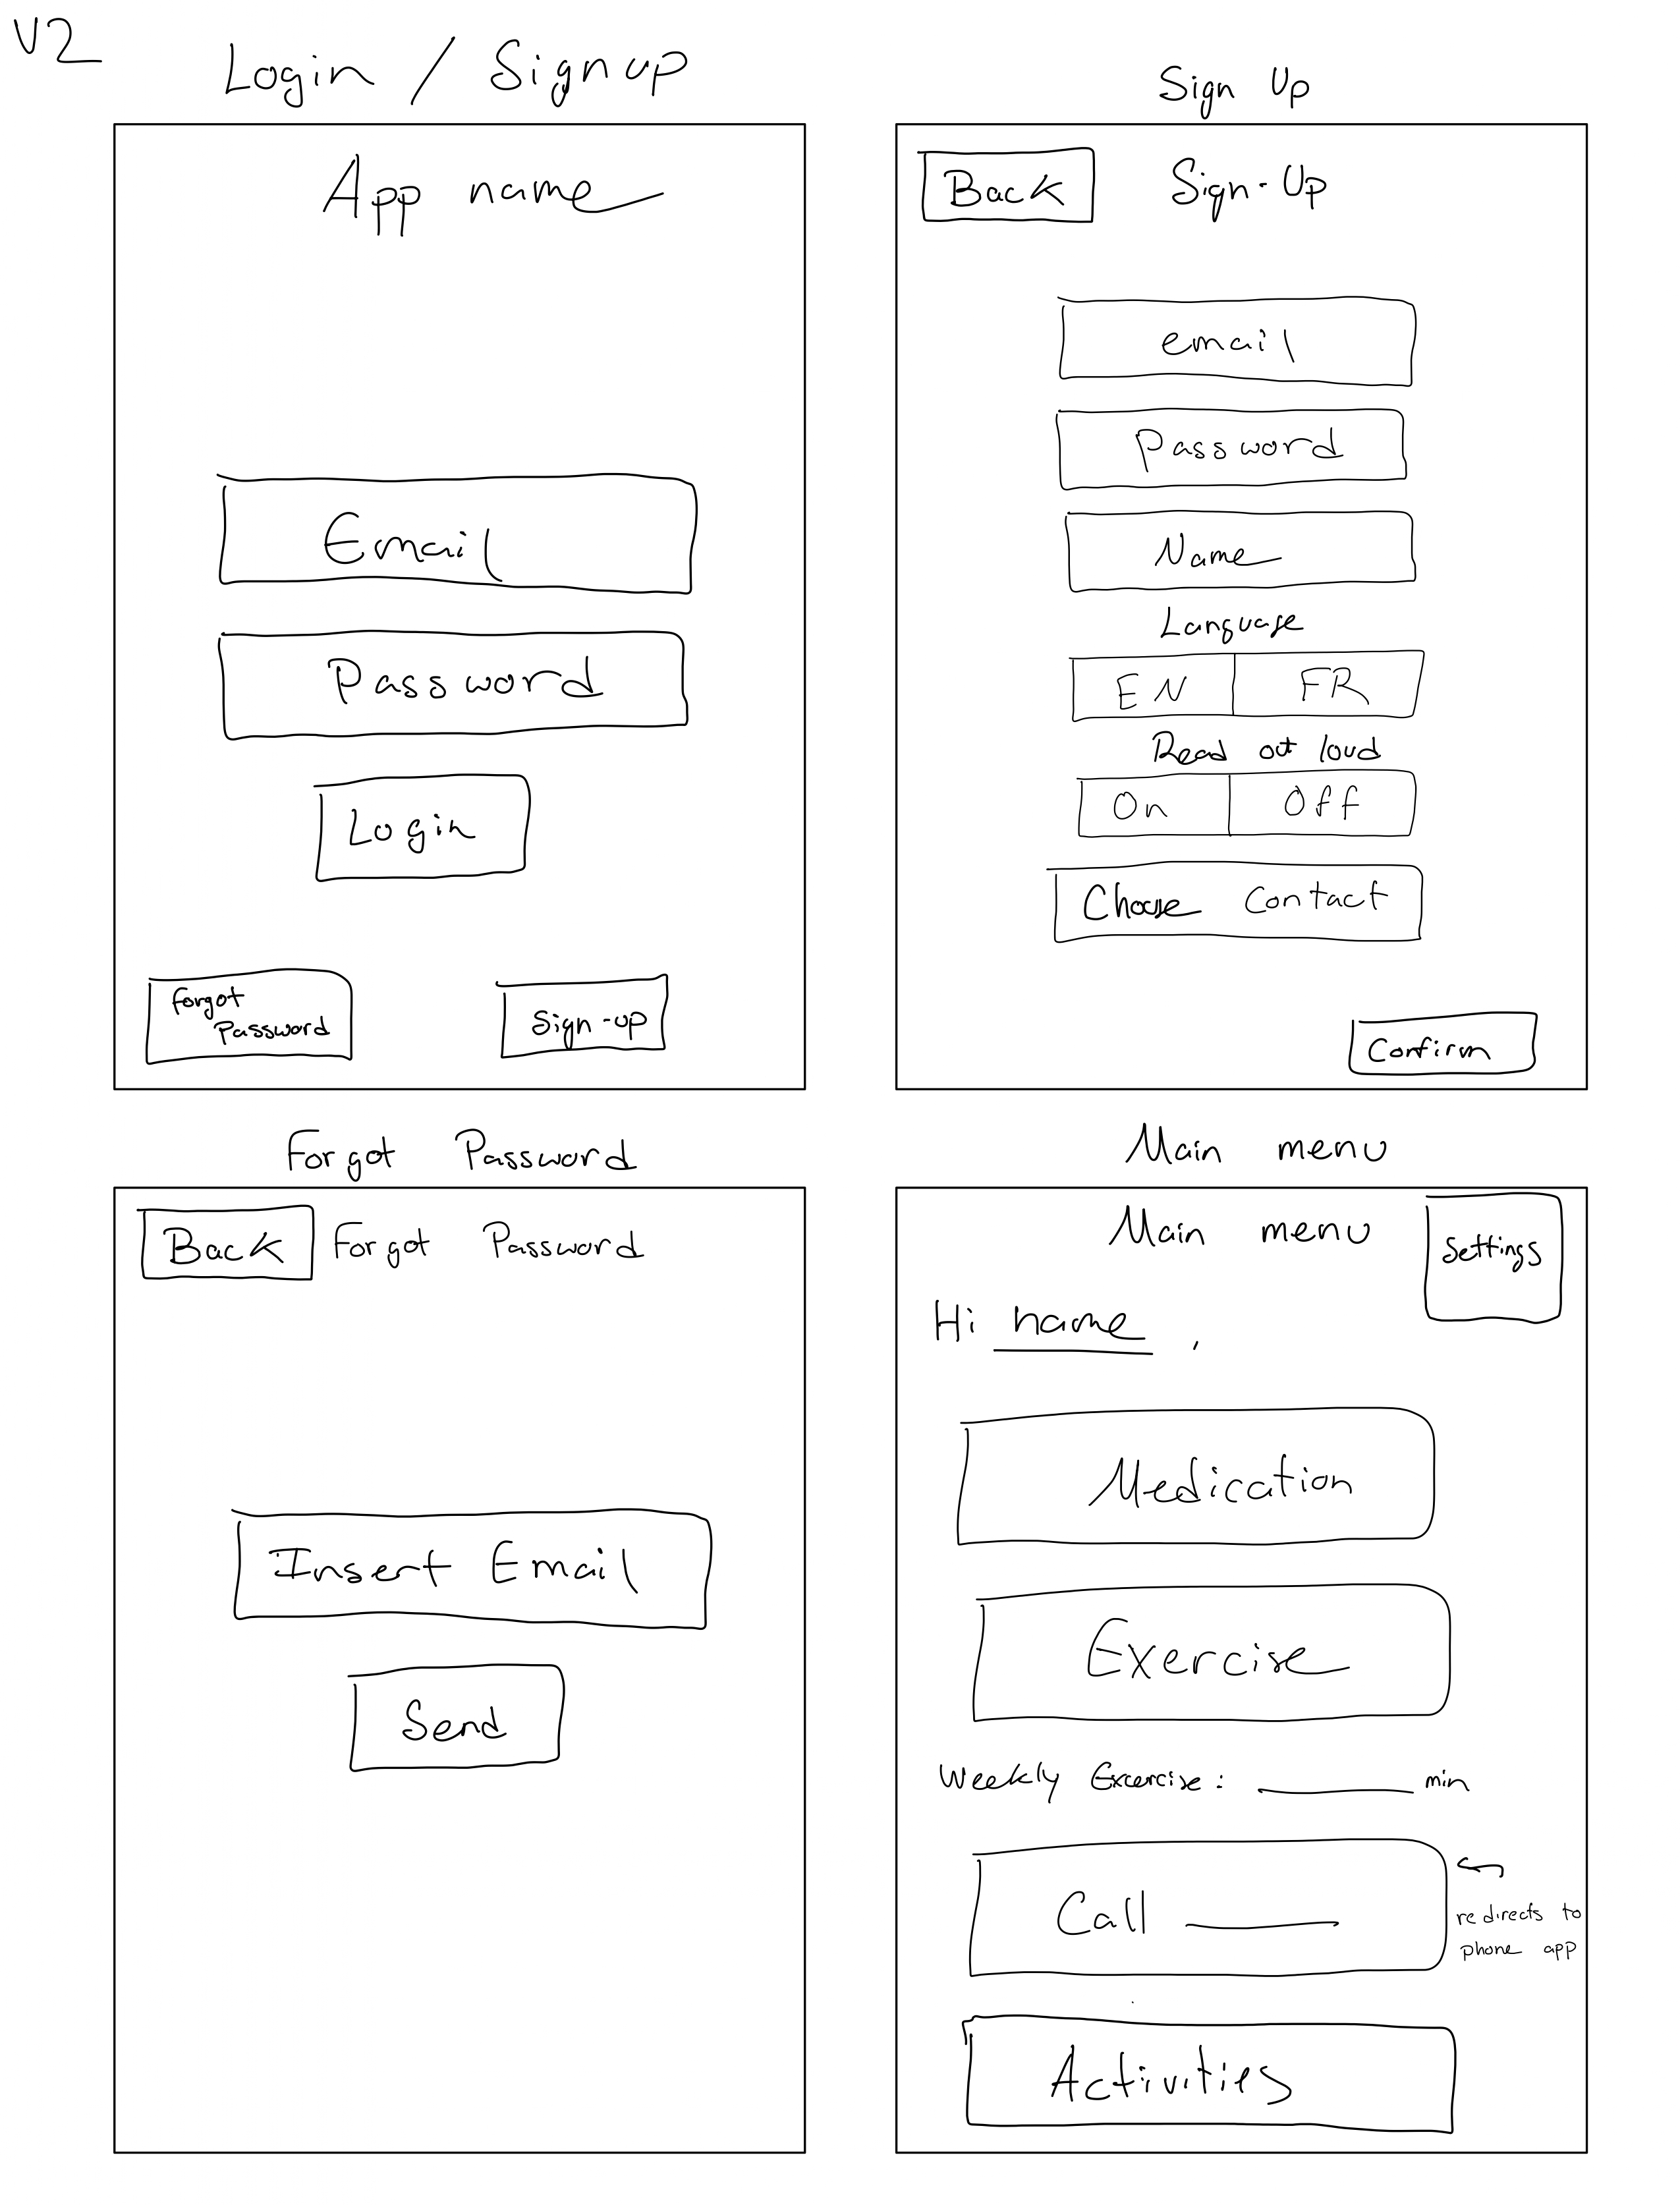 V2
Login / Signup
App name
Email
Password
Login
Forgot
Password
Sign-up
Sign Up
Back
Sign-Up
email
Password
Name
Language
EN FR
Read out loud
On Off
Choose Contact
Confirm
Forgot Password
Back Forgot Password
Insert Email
Send
Main menu
Main menu
Settings
Hi name ,
Medication
Exercise
Weekly Excercise: ______ min
Call ______
redirects to
phone app
Activities